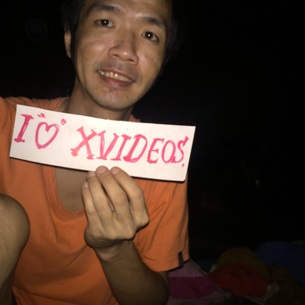 I "♡" XVIDEOS.